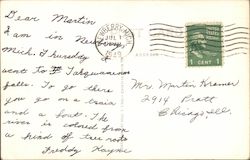 Dear Martin
I am in Newberry
Mich. Thursday I
went to Taquamenon
falls. To go there
you go on a train
and a boat. The
river is colored from
a kind of tree roots
Freddy Kayne
NEWBERRY, MICH.
JUL
1 CENT 1
Mr. Martin Kramer
2914 Pratt
Chicago, Ill.